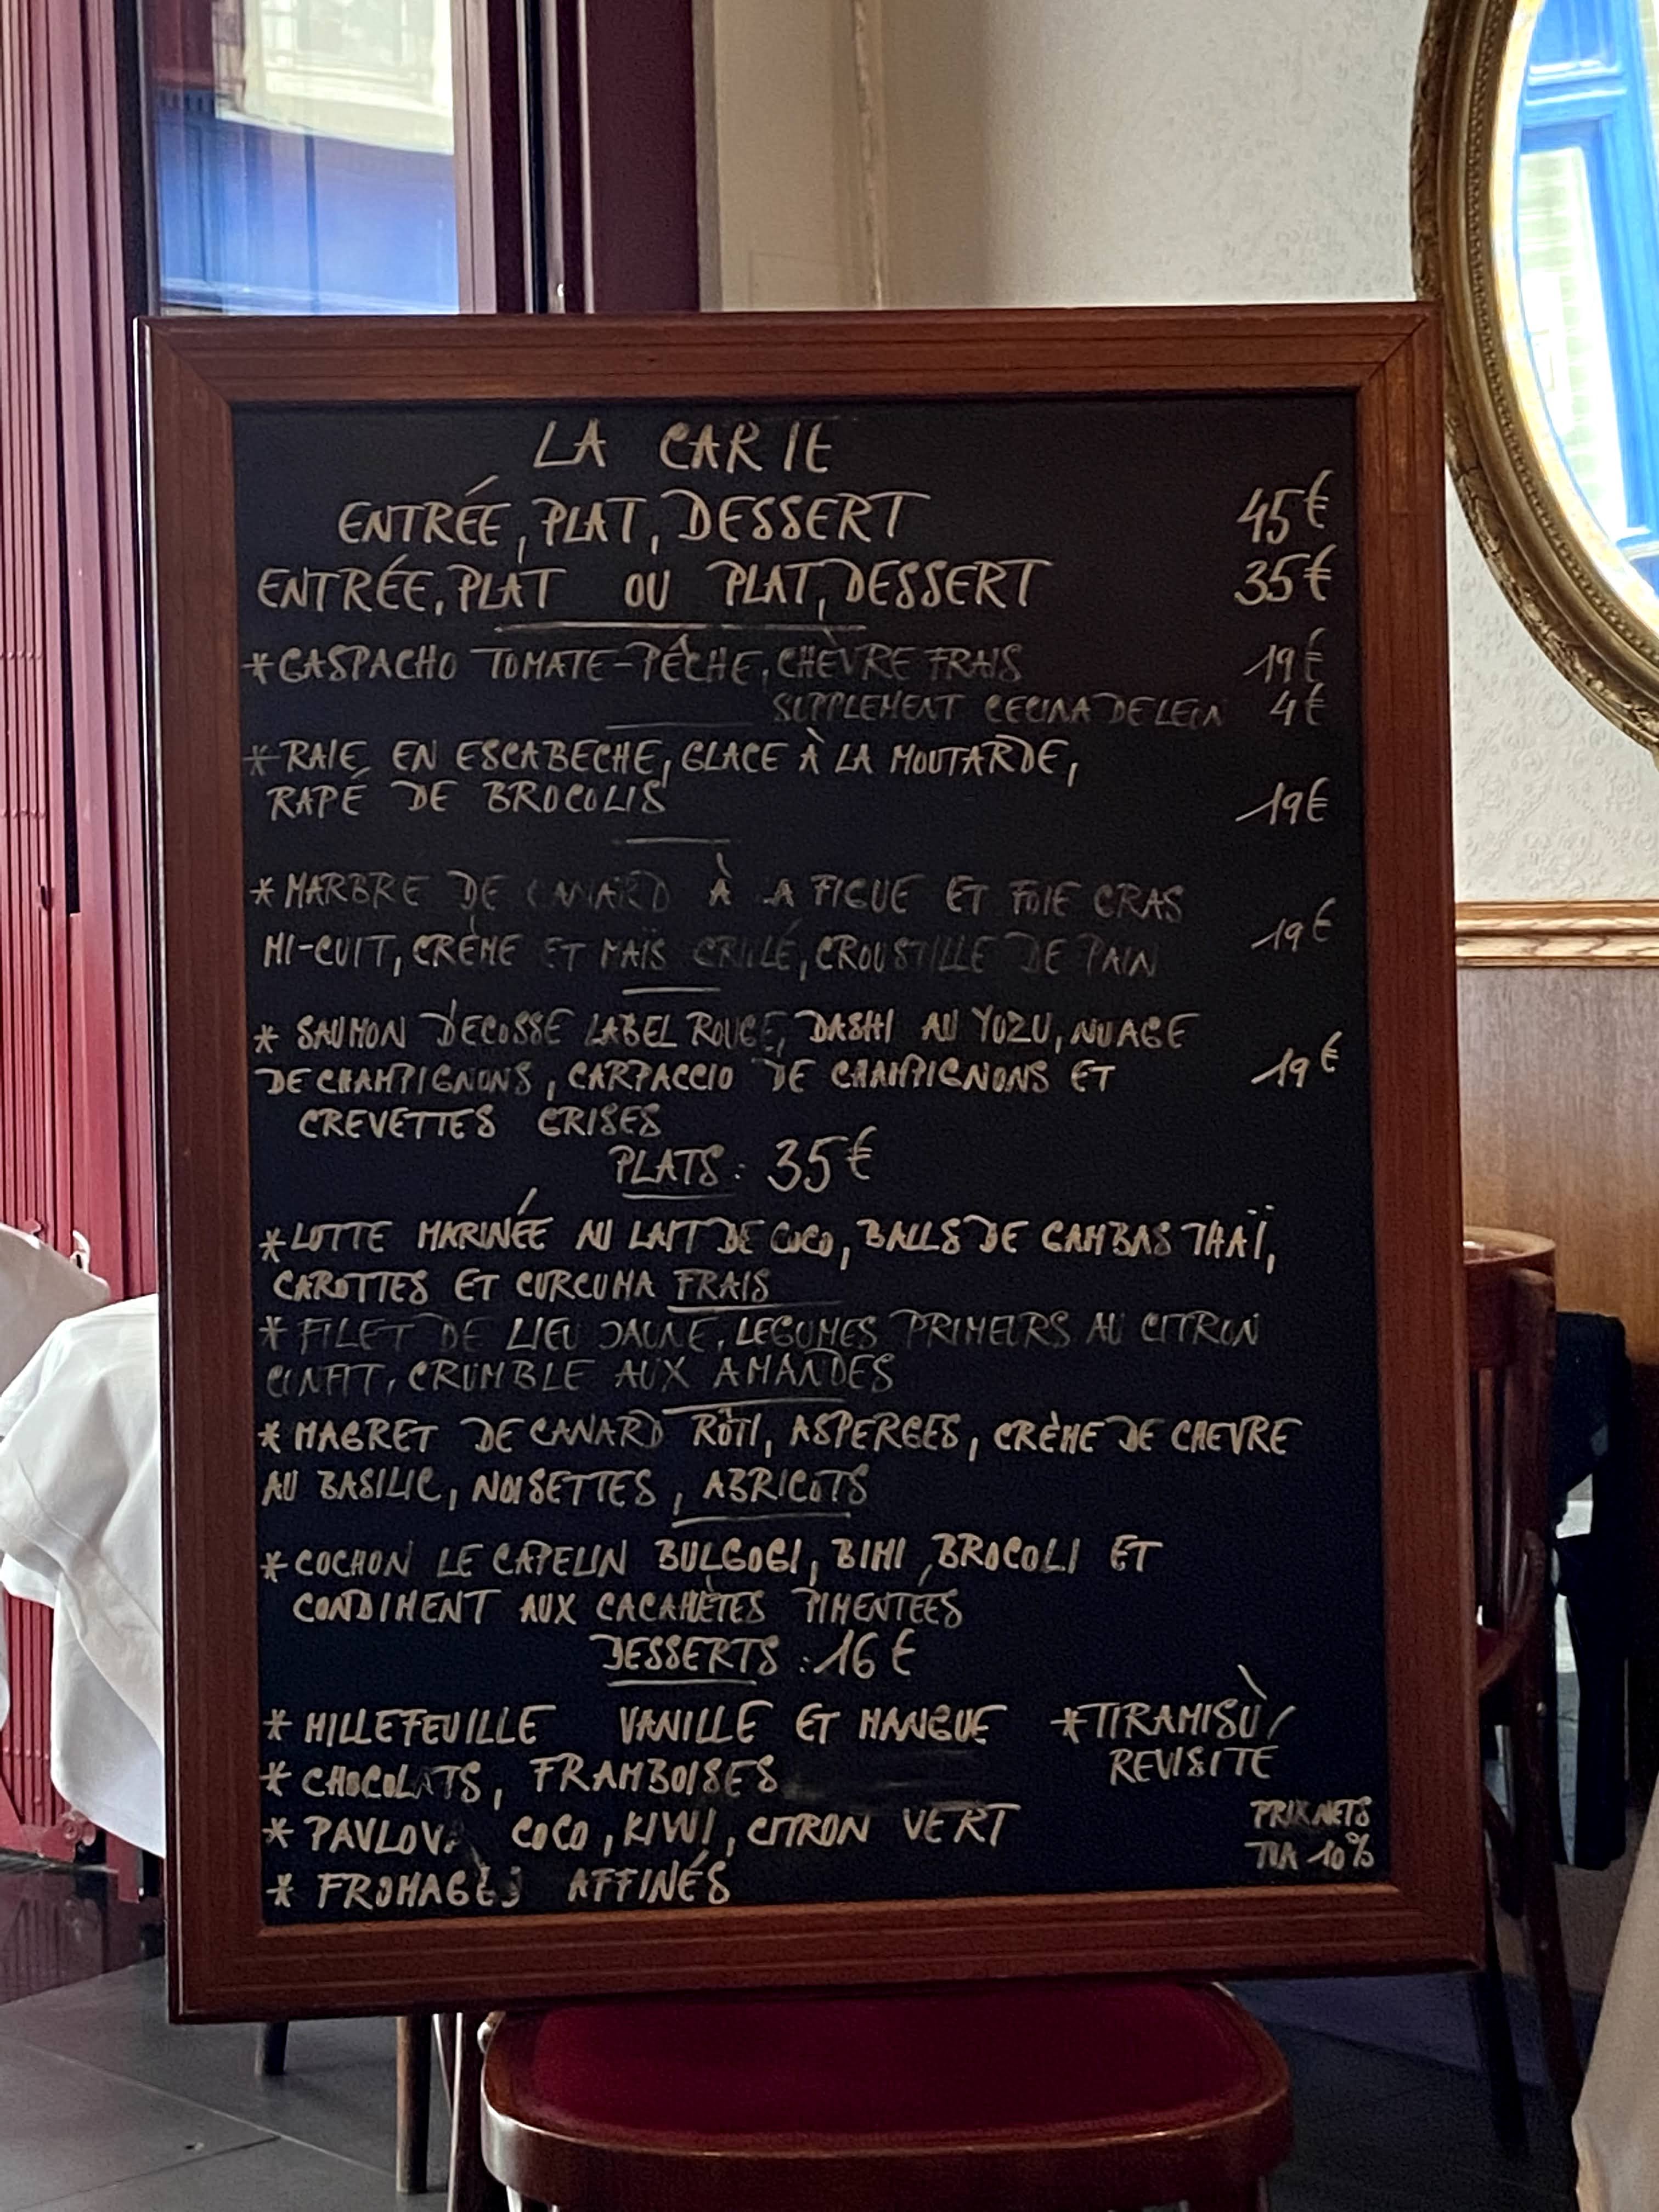 LA CARTE
ENTRÉE, PLAT, DESSERT 45€
ENTRÉE, PLAT OU PLAT, DESSERT 35€
*GASPACHO TOMATE-PÊCHE, CHÈVRE FRAIS 19€
SUPPLEMENT CECINA DE LEON 4€
*RAIE EN ESCABECHE, GLACE À LA MOUTARDE,
RAPÉ DE BROCOLIS 19€
*MARBRE DE CANARD À LA FIGUE ET FOIE GRAS
MI-CUIT, CRÈME ET MAÏS GRILLÉ, CROUSTILLE DE PAIN 19€
* SAUMON D'ECOSSE LABEL ROUGE, DASHI AU YUZU, NUAGE
DE CHAMPIGNONS, CARPACCIO DE CHAMPIGNONS ET 19€
CREVETTES GRISES
PLATS : 35€
*LOTTE MARINÉE AU LAIT DE COCO, BALLS DE GAMBAS THAÏ,
CAROTTES ET CURCUMA FRAIS
*FILET DE LIEU JAUNE, LEGUMES PRIMEURS AU CITRON
CONFIT, CRUMBLE AUX AMANDES
*MAGRET DE CANARD RÔTI, ASPERGES, CRÈME DE CHEVRE
AU BASILIC, NOISETTES, ABRICOTS
*COCHON LE CAPELIN BULGOGI, BIMI, BROCOLI ET
CONDIMENT AUX CACAHÈTES PIMENTÉES
DESSERTS : 16€
* MILLEFEUILLE VANILLE ET MANGUE *TIRAMISÙ
REVISITÉ
* CHOCOLATS, FRAMBOISES
* PAVLOVA COCO, KIWI, CITRON VERT
* FROMAGES AFFINÉS
PRIX NETS
TVA 10%